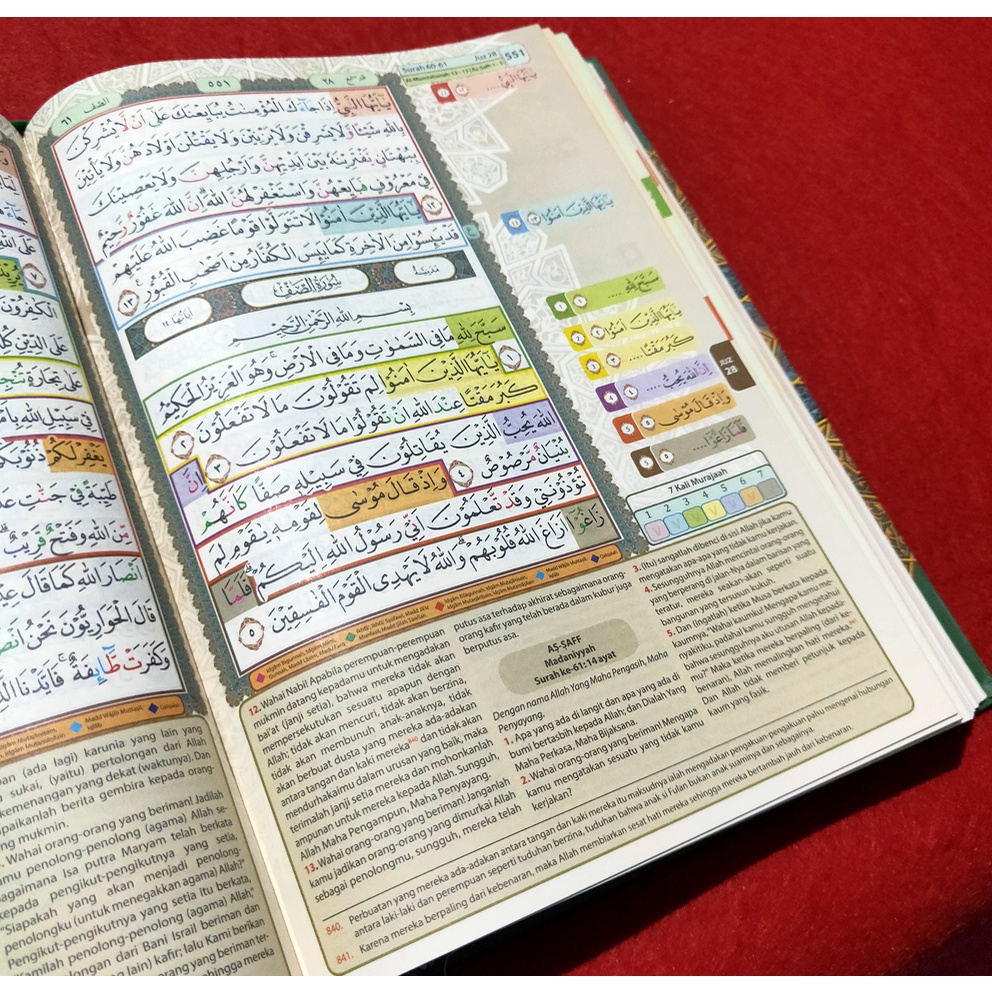 الصف ٦١
٥٥١
قد سمع ٢٨
Surah 60-61
Juz 28
551
يٰٓاَيُّهَا النَّبِيُّ اِذَا جَاۤءَكَ الْمُؤْمِنٰتُ يُبَايِعْنَكَ عَلٰٓى اَنْ لَّا يُشْرِكْنَ
بِاللّٰهِ شَيْـًٔا وَّلَا يَسْرِقْنَ وَلَا يَزْنِيْنَ وَلَا يَقْتُلْنَ اَوْلَادَهُنَّ وَلَا يَأْتِيْنَ
بِبُهْتَانٍ يَّفْتَرِيْنَهٗ بَيْنَ اَيْدِيْهِنَّ وَاَرْجُلِهِنَّ وَلَا يَعْصِيْنَكَ
فِيْ مَعْرُوْفٍ فَبَايِعْهُنَّ وَاسْتَغْفِرْ لَهُنَّ اللّٰهَ ۗاِنَّ اللّٰهَ غَفُوْرٌ رَّحِيْمٌ
١٢ يٰٓاَيُّهَا الَّذِيْنَ اٰمَنُوْا لَا تَتَوَلَّوْا قَوْمًا غَضِبَ اللّٰهُ عَلَيْهِمْ
قَدْ يَىِٕسُوْا مِنَ الْاٰخِرَةِ كَمَا يَىِٕسَ الْكُفَّارُ مِنْ اَصْحٰبِ الْقُبُوْرِ ١٣
مدنية سُوْرَةُ الصَّفِّ آياتها ١٤
بِسْمِ اللّٰهِ الرَّحْمٰنِ الرَّحِيْمِ
سَبَّحَ لِلّٰهِ مَا فِى السَّمٰوٰتِ وَمَا فِى الْاَرْضِۚ وَهُوَ الْعَزِيْزُ الْحَكِيْمُ
١ يٰٓاَيُّهَا الَّذِيْنَ اٰمَنُوْا لِمَ تَقُوْلُوْنَ مَا لَا تَفْعَلُوْنَ ٢
كَبُرَ مَقْتًا عِنْدَ اللّٰهِ اَنْ تَقُوْلُوْا مَا لَا تَفْعَلُوْنَ ٣ اِنَّ
اللّٰهَ يُحِبُّ الَّذِيْنَ يُقَاتِلُوْنَ فِيْ سَبِيْلِهٖ صَفًّا كَاَنَّهُمْ
بُنْيَانٌ مَّرْصُوْصٌ ٤ وَاِذْ قَالَ مُوْسٰى لِقَوْمِهٖ يٰقَوْمِ لِمَ
تُؤْذُوْنَنِيْ وَقَدْ تَّعْلَمُوْنَ اَنِّيْ رَسُوْلُ اللّٰهِ اِلَيْكُمْۗ فَلَمَّا
زَاغُوْٓا اَزَاغَ اللّٰهُ قُلُوْبَهُمْۗ وَاللّٰهُ لَا يَهْدِى الْقَوْمَ الْفٰسِقِيْنَ ٥
يٰٓاَيُّهَا النَّبِيُّ ....
يٰٓاَيُّهَا الَّذِيْنَ اٰمَنُوْا
سَبَّحَ لِلّٰهِ ....
يٰٓاَيُّهَا الَّذِيْنَ اٰمَنُوْا
كَبُرَ مَقْتًا ....
اِنَّ اللّٰهَ يُحِبُّ ....
وَاِذْ قَالَ مُوْسٰى
فَلَمَّا زَاغُوْٓا ....
JUZ
28
7 Kali Murajaah
1 2 3 4 5 6 7
12. Wahai Nabi! Apabila perempuan-perempuan
mukmin datang kepadamu untuk mengadakan
bai'at (janji setia), bahwa mereka tidak akan
mempersekutukan sesuatu apapun dengan
Allah; tidak akan mencuri, tidak akan berzina,
tidak akan membunuh anak-anaknya, tidak
akan berbuat dusta yang mereka ada-adakan
antara tangan dan kaki mereka840 dan tidak akan
mendurhakaimu dalam urusan yang baik, maka
terimalah janji setia mereka dan mohonkanlah
ampunan untuk mereka kepada Allah. Sungguh,
Allah Maha Pengampun, Maha Penyayang.
13. Wahai orang-orang yang beriman! Janganlah
kamu jadikan orang-orang yang dimurkai Allah
sebagai penolongmu, sungguh, mereka telah
putus asa terhadap akhirat sebagaimana orang-
orang kafir yang telah berada dalam kubur juga
berputus asa.
AṢ-ṢAFF
Madaniyyah
Surah ke-61: 14 ayat
Dengan nama Allah Yang Maha Pengasih, Maha
Penyayang.
1. Apa yang ada di langit dan apa yang ada di
bumi bertasbih kepada Allah; dan Dialah Yang
Maha Perkasa, Maha Bijaksana.
2. Wahai orang-orang yang beriman! Mengapa
kamu mengatakan sesuatu yang tidak kamu
kerjakan?
3. (Itu) sangatlah dibenci di sisi Allah jika kamu
mengatakan apa-apa yang tidak kamu kerjakan.
4. Sesungguhnya Allah mencintai orang-orang
yang berperang di jalan-Nya dalam barisan yang
teratur, mereka seakan-akan seperti suatu
bangunan yang tersusun kukuh.
5. Dan (ingatlah) ketika Musa berkata kepada
kaumnya, "Wahai kaumku! Mengapa kamu me-
nyakitiku, padahal kamu sungguh mengetahui
bahwa sesungguhnya aku utusan Allah kepada-
mu?" Maka ketika mereka berpaling (dari ke-
benaran), Allah memalingkan hati mereka.841
Dan Allah tidak memberi petunjuk kepada
kaum yang fasik.
840. Perbuatan yang mereka ada-adakan antara tangan dan kaki mereka itu maksudnya ialah mengadakan pengakuan-pengakuan palsu mengenai hubungan
antara laki-laki dan perempuan seperti tuduhan berzina, tuduhan bahwa anak si Fulan bukan anak suaminya dan sebagainya.
841. Karena mereka berpaling dari kebenaran, maka Allah membiarkan sesat hati mereka sehingga mereka bertambah jauh dari kebenaran.
(ada lagi) karunia yang lain yang
sukai, (yaitu) pertolongan dari Allah
kemenangan yang dekat (waktunya). Dan
sampaikanlah berita gembira kepada orang-
mukmin.
Wahai orang-orang yang beriman! Jadilah
penolong-penolong (agama) Allah se-
bagaimana Isa putra Maryam telah berkata
kepada pengikut-pengikutnya yang setia,
"Siapakah yang akan menjadi penolong-
penolongku (untuk menegakkan agama) Allah?"
Pengikut-pengikutnya yang setia itu berkata,
"Kamilah penolong-penolong (agama) Allah,"
dari Bani Israil beriman dan
lain) kafir; lalu Kami berikan
orang yang beriman ter-
sehingga mereka